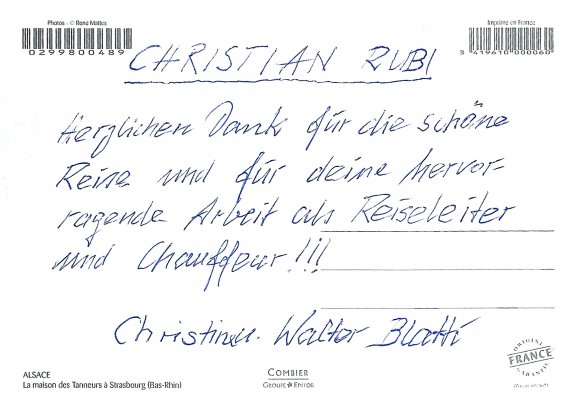 Photos : © René Mattes
Imprimé en France
0299800489
3 419610 000060
CHRISTIAN RUBI
Herzlichen Dank für die schöne
Reise und für deine hervor-
ragende Arbeit als Reiseleiter
und Chauffeur!!!
Christine u. Walter Blatti
ORIGINE
FRANCE
GARANTIE
ALSACE
La maison des Tanneurs à Strasbourg (Bas-Rhin)
COMBIER
GROUPE EDITOR